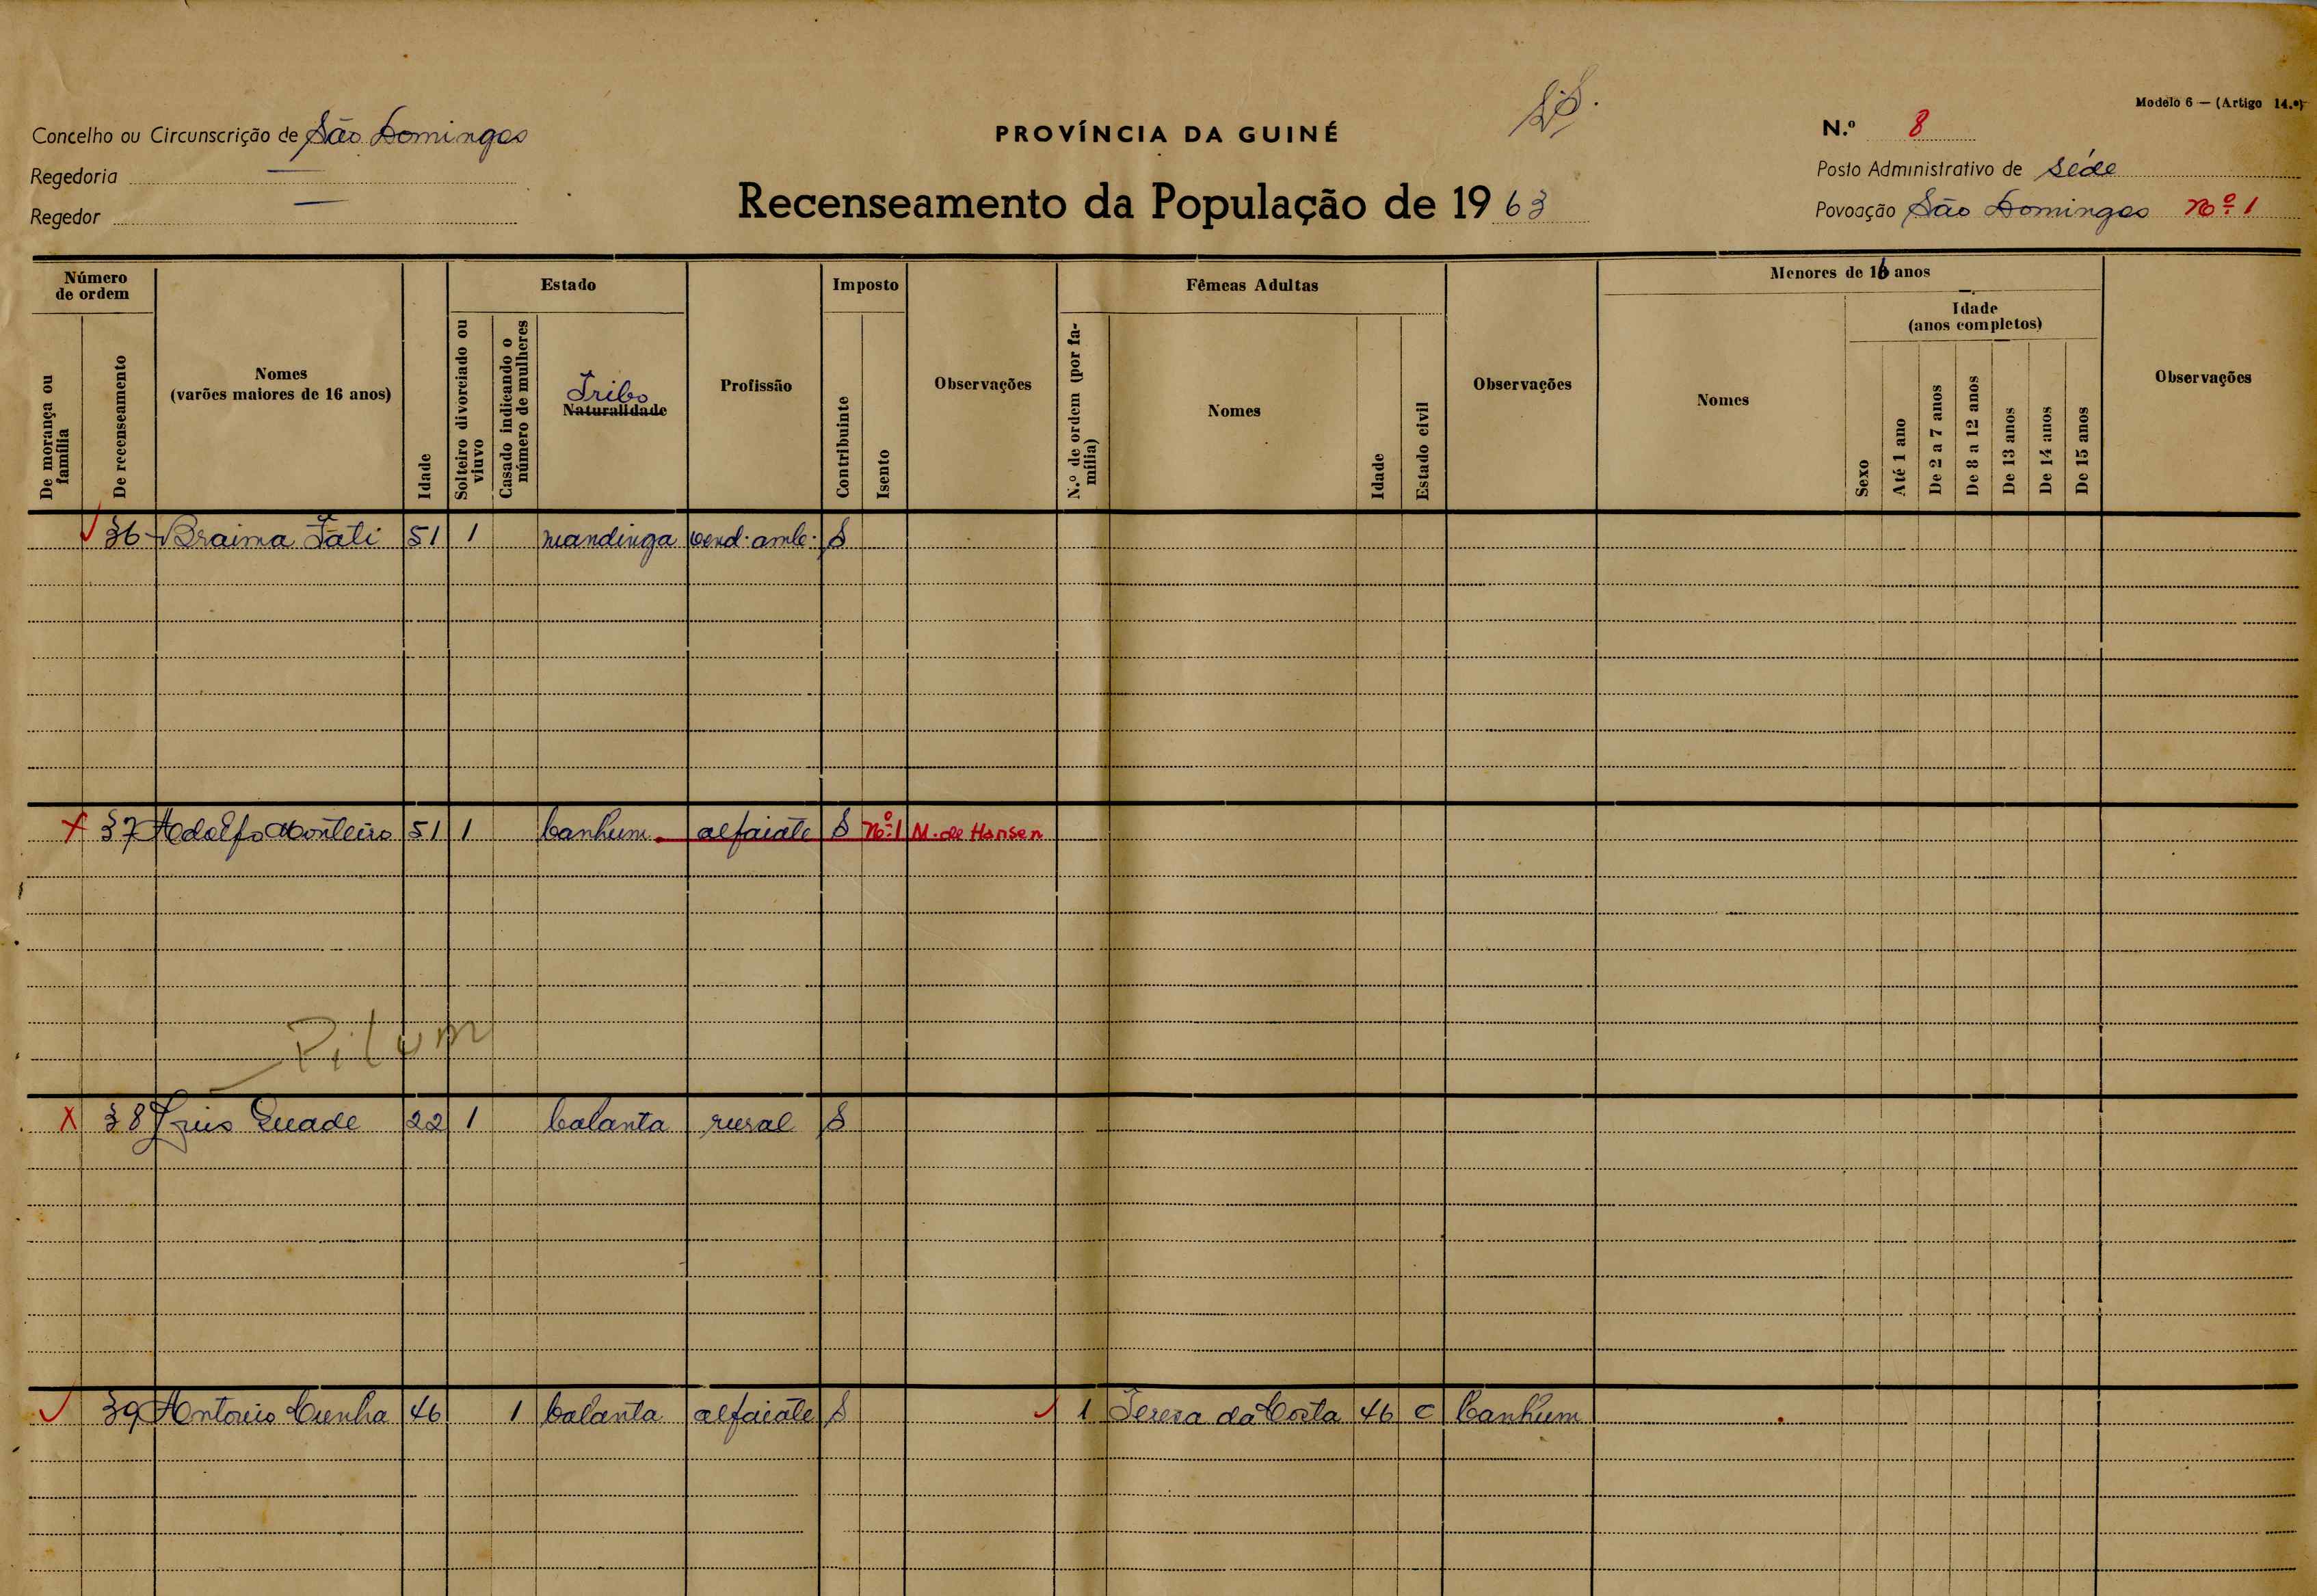 Modelo 6 — (Artigo 14.º)
Concelho ou Circunscrição de São Domingos
PROVÍNCIA DA GUINÉ
N.º 8
Regedoria —
Posto Administrativo de Séde
Regedor —
Recenseamento da População de 1963
Povoação São Domingos Nº 1
Número de ordem
De morança ou família
De recenseamento
Nomes
(varões maiores de 16 anos)
Idade
Estado
Solteiro divorciado ou viuvo
Casado indicando o número de mulheres
Tribo
Naturalidade
Profissão
Imposto
Contribuinte
Isento
Observações
Fêmeas Adultas
N.º de ordem (por família)
Nomes
Idade
Estado civil
Observações
Menores de 16 anos
Nomes
Sexo
Idade
(anos completos)
Até 1 ano
De 2 a 7 anos
De 8 a 12 anos
De 13 anos
De 14 anos
De 15 anos
Observações
36 Braima Fati 51 1 mandinga vend. amb. S
37 Adolfo Monteiro 51 1 banhum alfaiate S Nº 1 M. de Hansen
38 Luis Quade 22 1 balanta rural S
39 Antonio Cunha 46 1 balanta alfaiate S 1 Teresa da Costa 46 C banhum